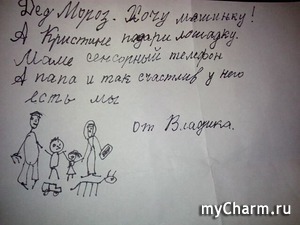 Дед Мороз. Хочу машинку!
А Кристине подари лошадку.
Маме сенсорный телефон
А папа и так счастлив у него
есть мы
от Владика.
myCharm.ru